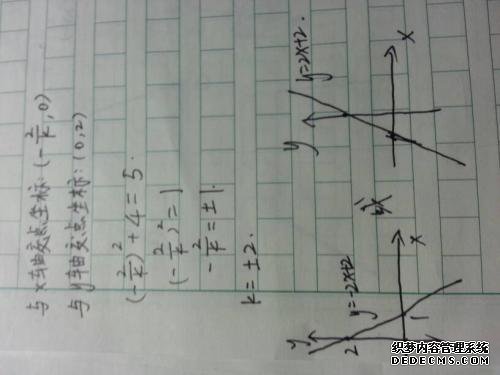 与x轴交点坐标:(-2/k,0)
与y轴交点坐标:(0,2)
(-2/k)²+4=5.
(-2/k)²=1
-2/k=±1.
k=±2.
y
2
y=-2x+2
1
x
或
y
y=2x+2.
x
织梦内容管理系统
DEDECMS.COM